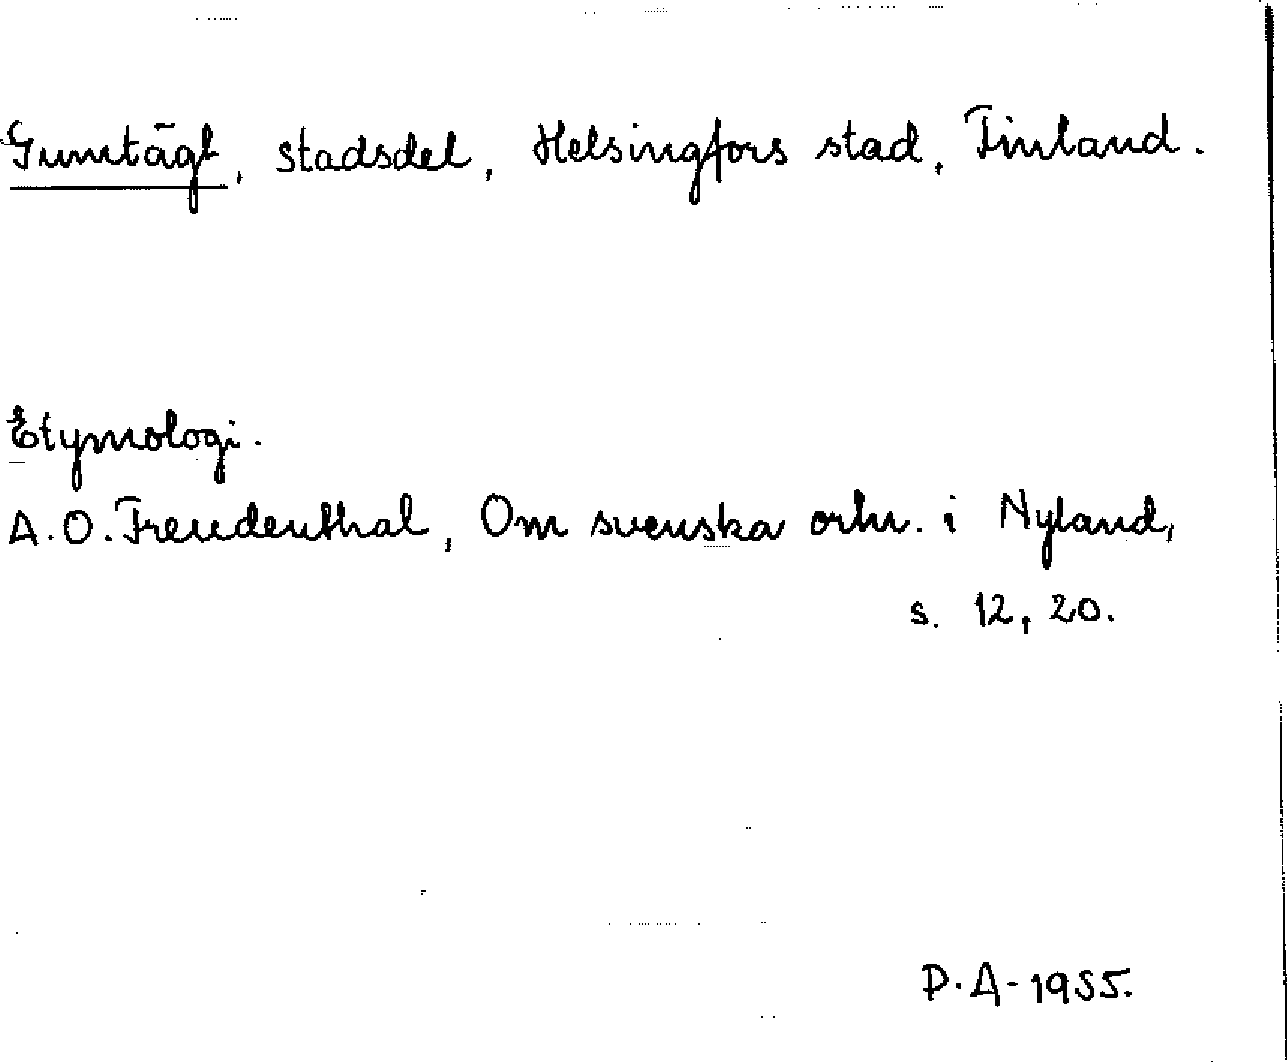 Gumtägt, stadsdel, Helsingfors stad, Finland.
Etymologi.
A.O. Freudenthal, Om svenska ortn. i Nyland,
s. 12, 20.
P.A-1955.